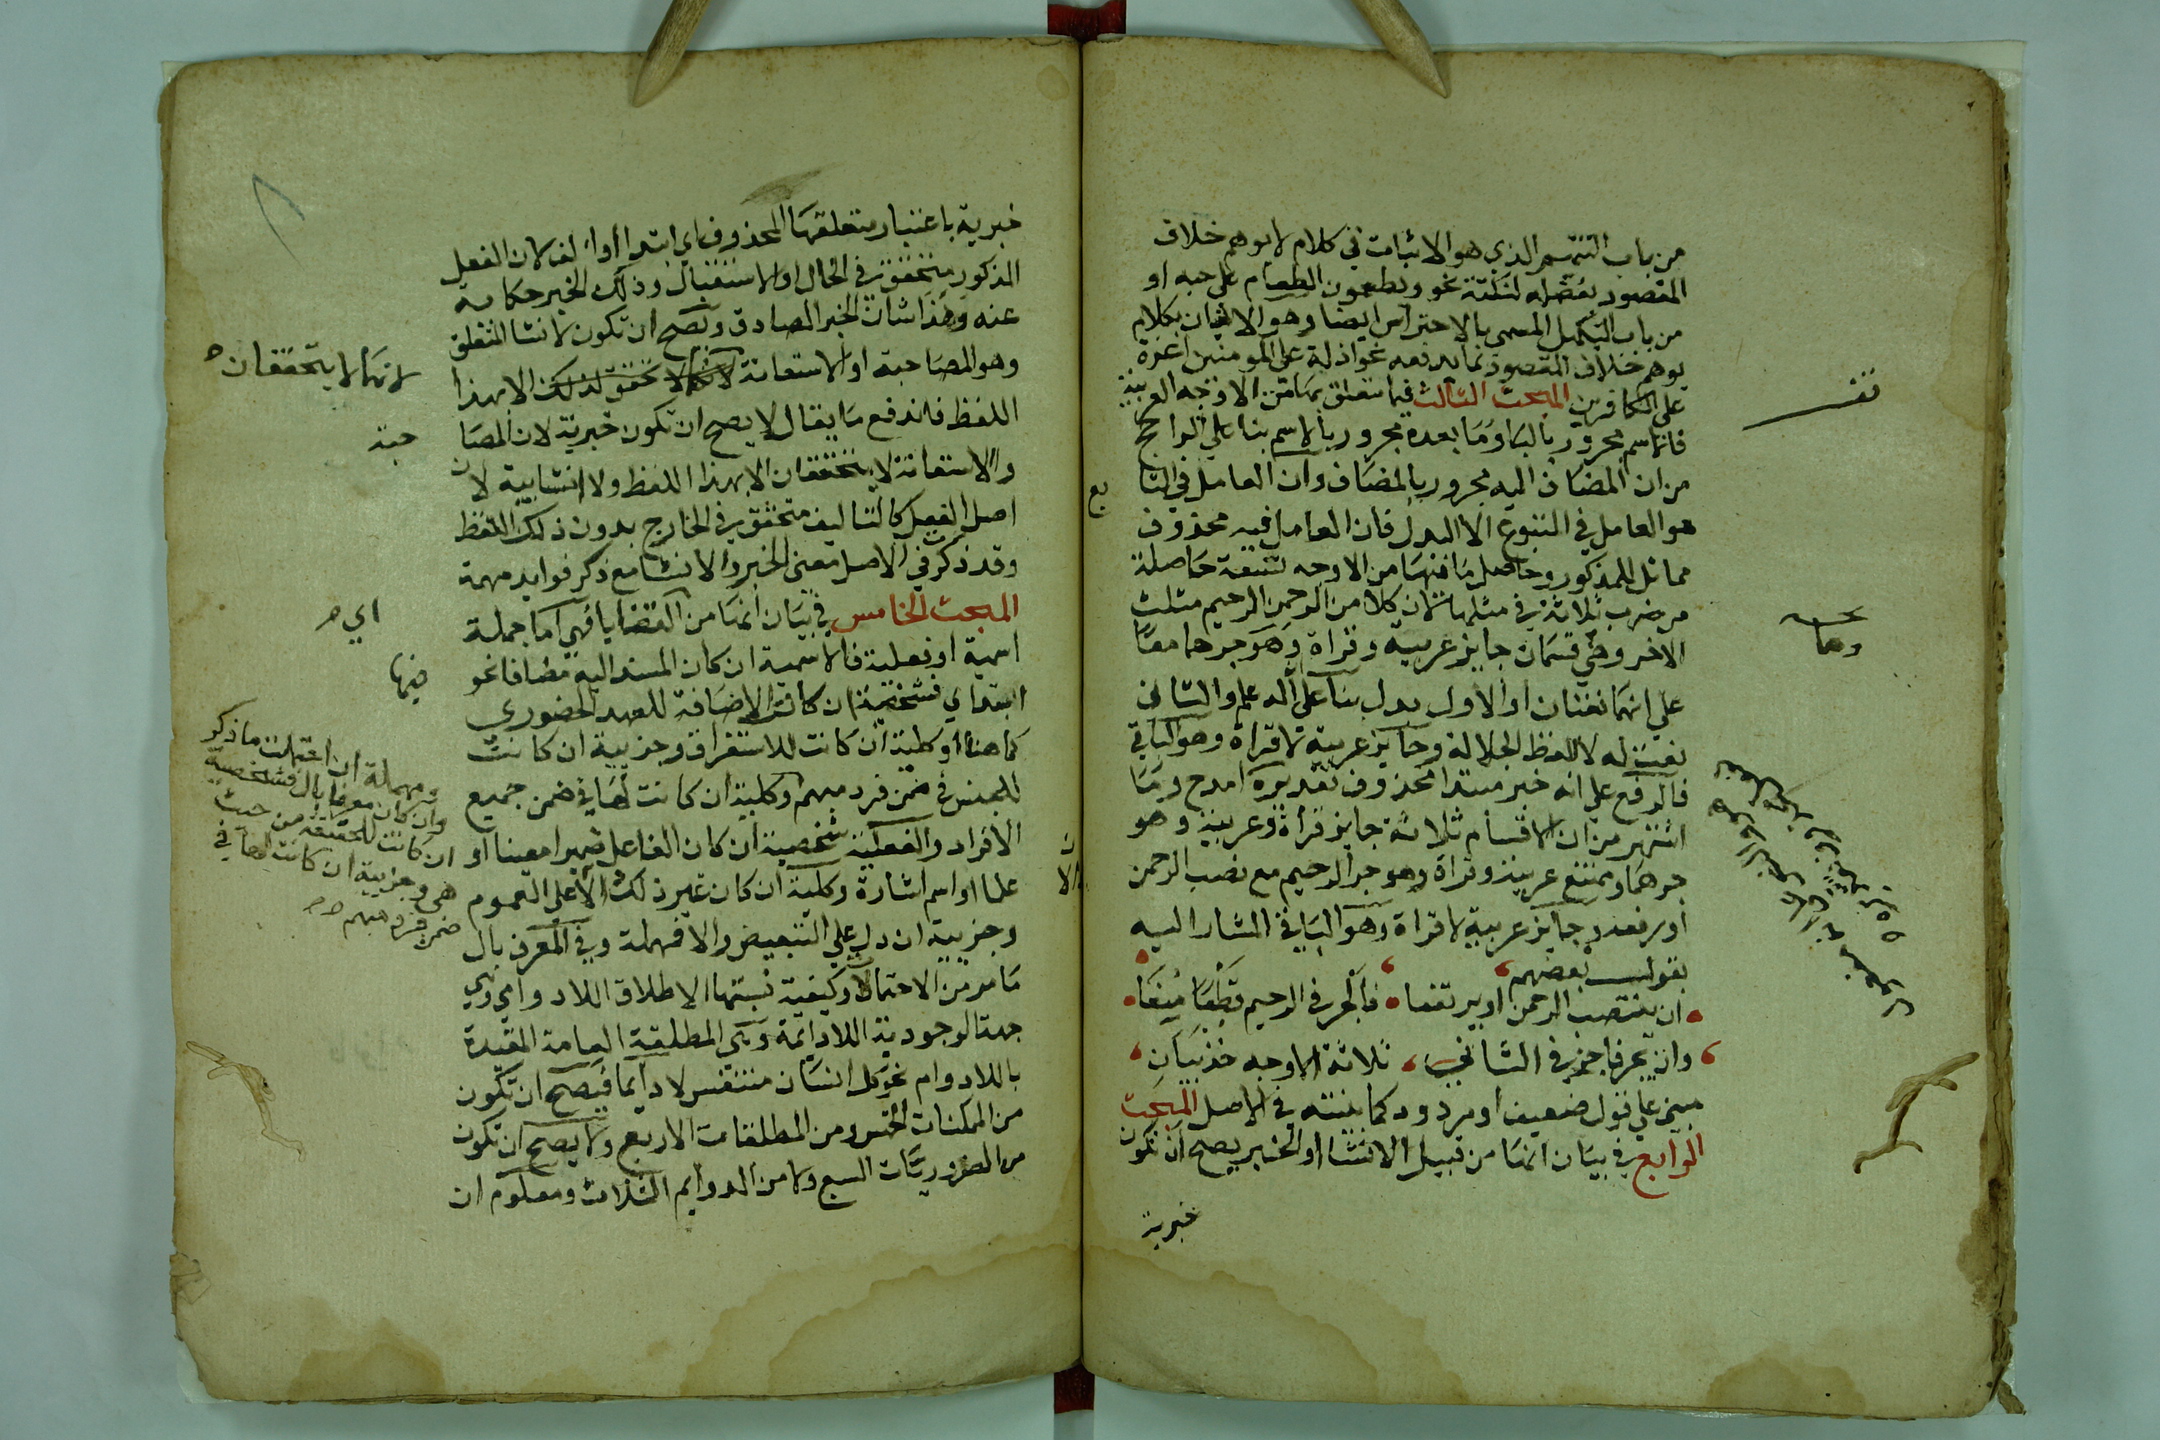 من باب التتميم الذي هو الاثبات في كلام لا يوهم خلاف
المقصود بفضله لنكتة نحو ويطعمون الطعام على حبه او
من باب التكميل المسمى بالاحتراس ايضا وهو الاتيان بكلام
يوهم خلاف المقصود بما يدفعه نحو اذلة على المومنين اعزة
على الكافرين المبحث الثالث فيما يتعلق بها من الاوجه العربية
فاسم مجرور بالبا وما بعده مجرور بالاسم بنا على الراجح
من ان المضاف اليه مجرور بالمضاف وان العامل في التا
بع
هو العامل في المتبوع الا البدل فان العامل فيه محذوف
مماثل للمذكور وحاصل ما فيها من الاوجه تسعة حاصلة
من ضرب ثلاثة في مثلها لان كلا من الرحمن الرحيم مثلث
الاخر وهي قسمان جايز عربية وقراة وهو جرهما معا
على انهما نعتان او الاول بدل بنا على انه علم والثاني
نعت له لا للفظ الجلالة وجايز عربية لا قراة وهو الباقي
فالرفع على انه خبر مبتدا محذوف تقديره امدح وما
اشتهر من ان الاقسام ثلاثة جايز قراة وعربية وهو
جرهما وممتنع عربية وقراة وهو جر الرحيم مع نصب الرحمن
او رفعه وجايز عربية لا قراة وهو الباقي المشار اليه
بقول بعضهم
ان ينتصب الرحمن او يرتفعا فالجر في الرحيم قطعا منعا
وان يجر فاجز في الثاني ثلاثة الاوجه خذ بيان
مبني على قول ضعيف او مردود كما بينته في الاصل المبحث
الرابع في بيان انها من قبيل الانشا او الخبر يصح ان تكون
خبرية
خبرية باعتبار متعلقها المحذوف اي ابتدا او اولف لان الفعل
المذكور متحقق في الحال او الاستقبال وذلك الخبر حكاية
عنه وهذا شان الخبر الصادق ويصح ان تكون لانشا المتعلق
وهو المصاحبة او الاستعانة لا تحقق لذلك الا بهذا
لانهما لا يتحققان
اللفظ فاندفع ما يقال لا يصح ان تكون خبرية لان المصا
حبة
والاستعانة لا يتحققان الا بهذا اللفظ ولا انشاىية لان
اصل الفعل كالتاليف متحقق في الخارج بدون ذلك اللفظ
وقد ذكرت في الاصل معنى الخبر والانشا مع ذكر فوايد مهمة
المبحث الخامس في بيان انها من القضايا فهي اما جملة
اي
اسمية او فعلية فالاسمية ان كان المسند اليه مضافا نحو
فيها
ابتداي فشخصية ان كانت الاضافة للعهد الحضوري
كما هنا او كلية ان كانت للاستغراق وجزىية ان كانت
للجنس في ضمن فرد مبهم وكلية ان كانت لها في ضمن جميع
الافراد والفعلية شخصية ان كان الفاعل ضميرا معينا او
علما او اسم اشارة وكلية ان كان غير ذلك ودل على العموم
وجزىية ان دل على التبعيض والا فمهملة وفي المعرف بال
ما مر من الاحتمالات وكيفية نسبتها الاطلاق اللادوامي وهي
جهة الوجودية اللادايمة وهي المطلقة العامة المقيدة
باللادوام نحو كل انسان متنفس لا دايما فيصح ان تكون
من الممكنات الخمس ومن المطلقات الاربع ولا يصح ان تكون
من الضروريات السبع ولا من الدوايم الثلاث ومعلوم ان
ومهملة ان احتملت ما ذكر
وان كان معرفا بال فشخصية
ان كانت للحقيقة من حيث
هي وجزىية ان كانت لها في
ضمن فرد مبهم